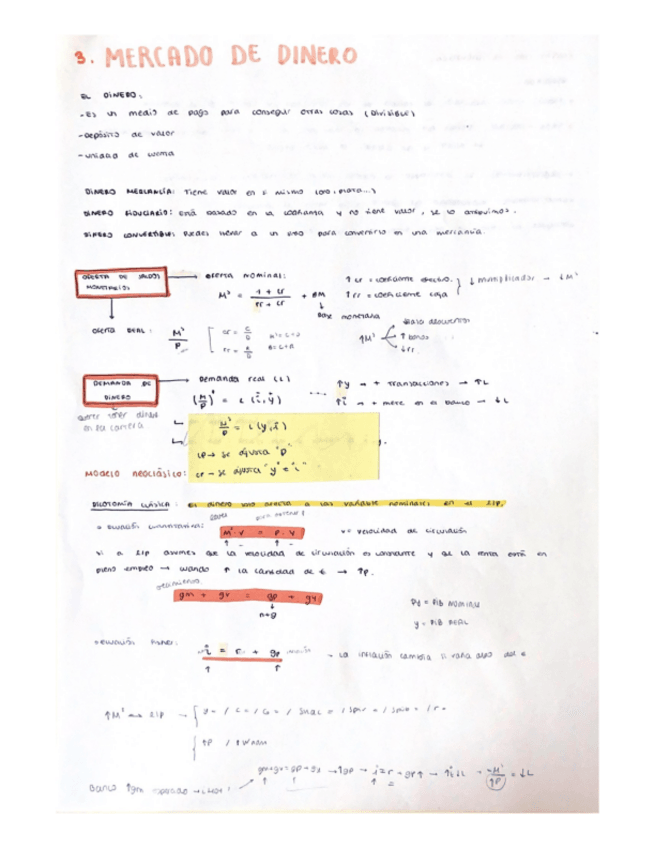 3. MERCADO DE DINERO
EL DINERO:
- Es un medio de pago para conseguir otras cosas (Divisible)
- Depósito de valor
- unidad de
DINERO MERCANCÍA: Tiene valor en sí mismo (oro, plata...)
DINERO FIDUCIARIO: Está basado en la confianza y no tiene valor, se lo atribuimos.
DINERO CONVERTIBLE: Puedes llevar a un para convertirlo en una mercancía.
OFERTA DE SALDOS MONETARIOS → Oferta nominal:
M^s = 1 + cr / rr + cr + BM
Base monetaria
↑ cr = coeficiente efectivo.
↑ rr = coeficiente caja
↓ multiplicador → ↓M^s
Oferta REAL: M^s / P
cr = C / D
rr = R / D
M^s = C + D
B = C + R
↑M^s
Bajo descuentos
↑ bonos
↓ rr
DEMANDA DE DINERO → Demanda real (L)
(M/P)^d = L (i, y)
↑y → + transacciones → ↑L
↑i → + mete en el banco → ↓L
querer tener dinero en la cartera
M^s/P = L (y, i)
LP → se ajusta "P"
cp → se ajusta "y" e "i"
MODELO NEOCLÁSICO:
DICOTOMÍA CLÁSICA: El dinero solo afecta a las variables nominales en el L/P.
Ecuación cuantitativa:
M^s · V = P · Y
V = velocidad de circulación
Si a L/P asumes que la velocidad de circulación es constante y que la renta está en
pleno empleo → cuando ↑ la cantidad de € → ↑P.
gm + gv = gp + gy
n+g
Py = PIB NOMINAL
y = PIB REAL
Ecuación Fisher:
i = r + gp
↑ ↑
→ La inflación cambia si varía algo del €
↑M^s en L/P
↑P / ↑W nom
gm+gv=gp+gy → ↑gp → i=r+gp↑ → ↑i↓L → M^s/↑P = ↓L
Banco ↑gm